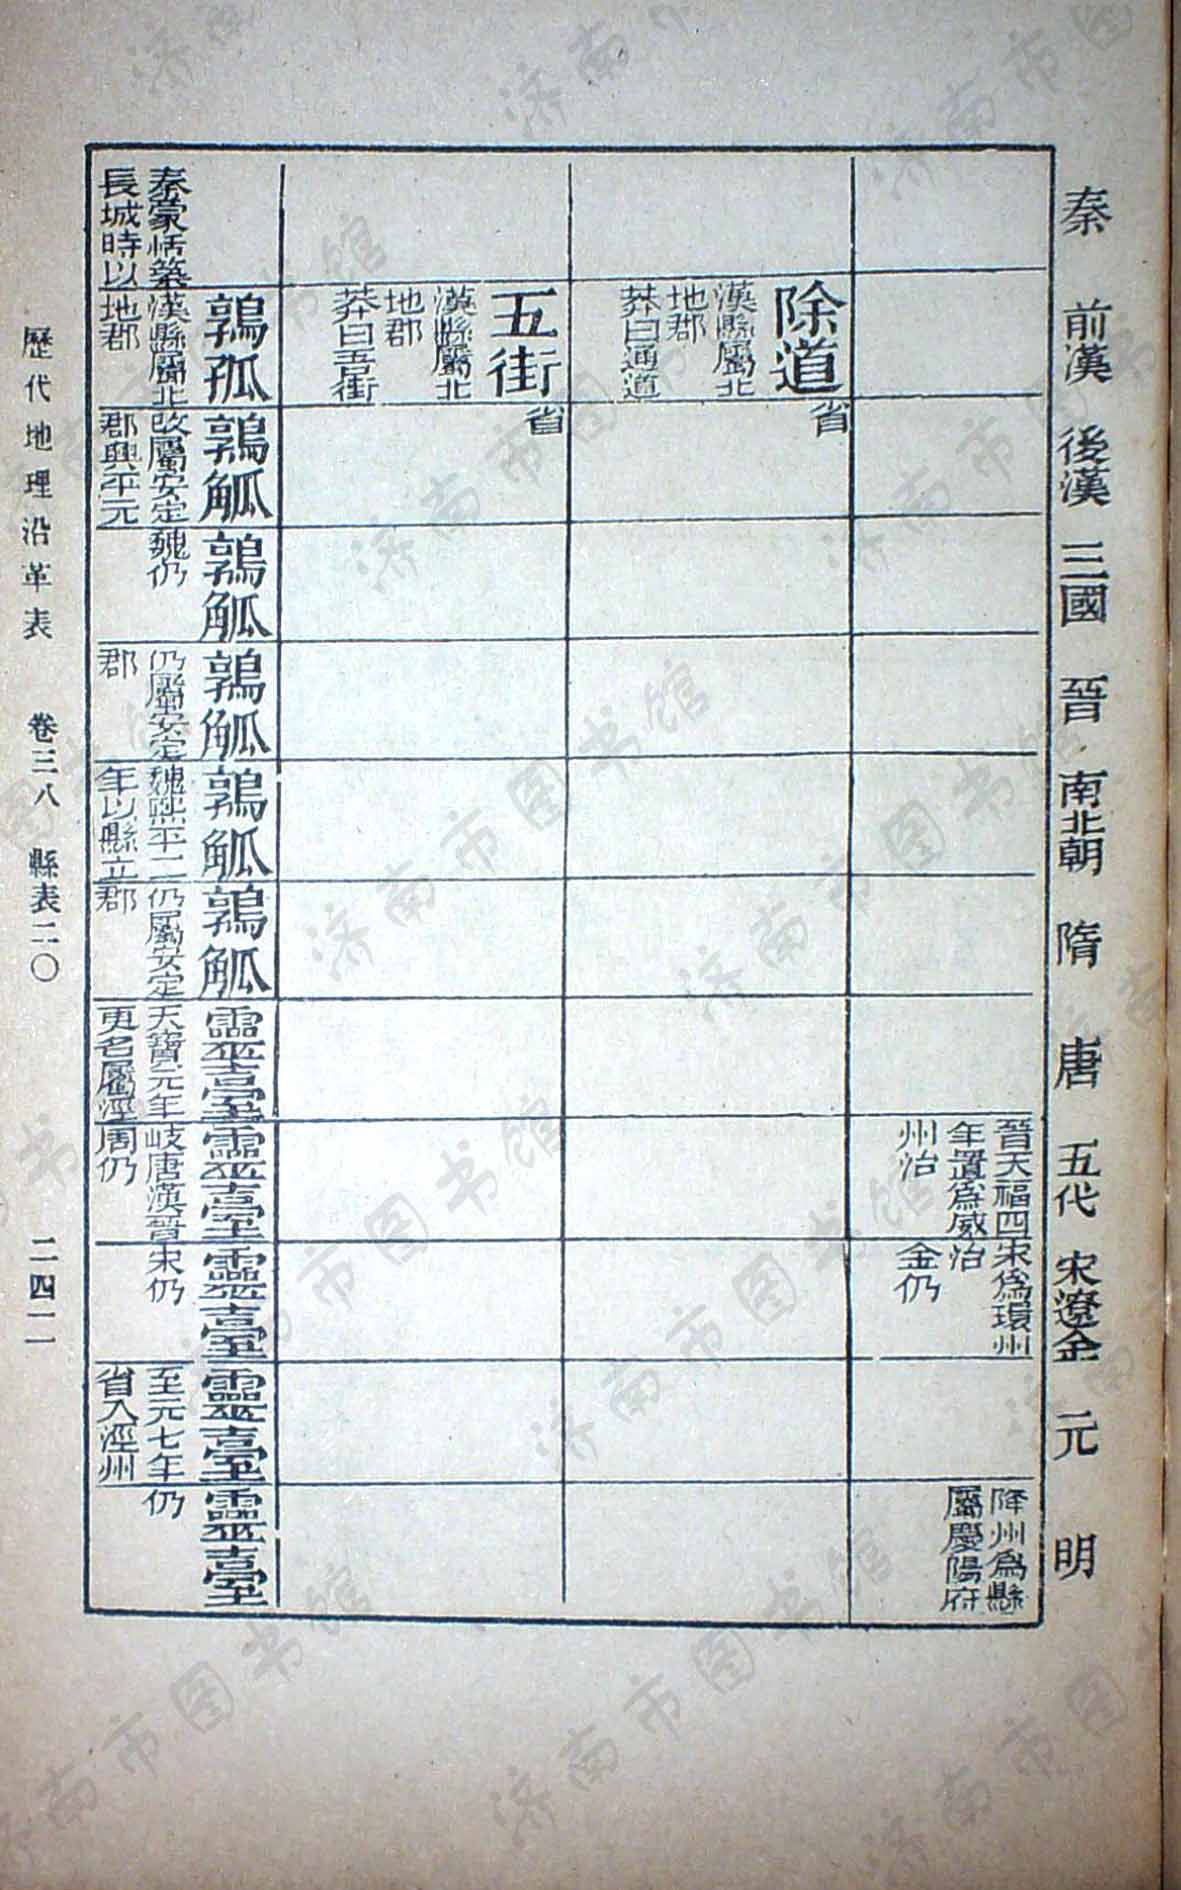 秦　前漢　後漢　三國　晉　南北朝　隋　唐　五代　宋遼金　元　明
晉天福四
年置爲威
州治
宋爲環州
治
金仍
降州爲縣
屬慶陽府
除道
漢縣屬北
地郡
莽曰通道
省
五街
漢縣屬北
地郡
莽曰吾街
省
秦蒙恬築
長城時以
鶉孤
漢縣屬北
地郡
鶉觚
改屬安定
郡興平元
鶉觚
魏仍
鶉觚
仍屬安定
郡
鶉觚
魏熙平二
年以縣立
鶉觚
仍屬安定
郡
靈臺
天寶元年
更名屬涇
靈臺
岐唐漢晉
周仍
靈臺
宋仍
靈臺
至元七年
省入涇州
靈臺
仍
歷代地理沿革表　卷三八　縣表二〇　二四一一
济南市图书馆